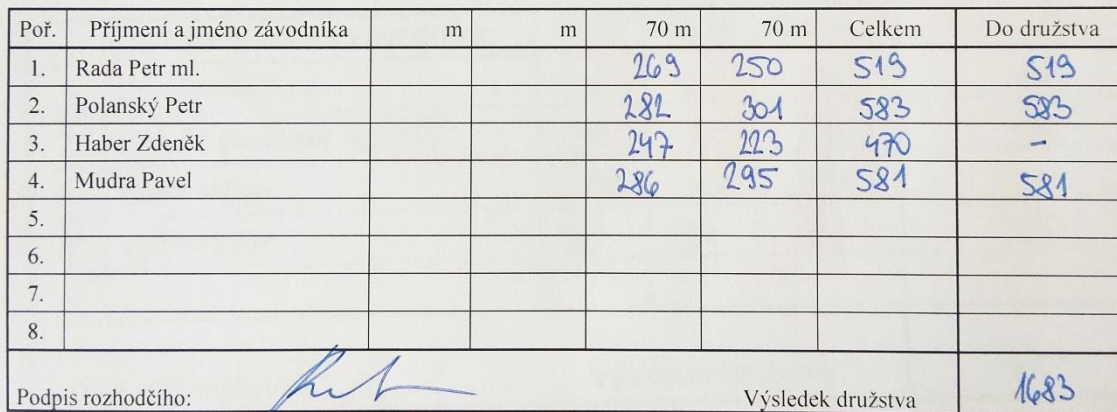 Poř. Příjmení a jméno závodníka m m 70 m 70 m Celkem Do družstva
1. Rada Petr ml. 269 250 519 519
2. Polanský Petr 282 301 583 583
3. Haber Zdeněk 247 223 470 -
4. Mudra Pavel 286 295 581 581
5.
6.
7.
8.
Podpis rozhodčího: Výsledek družstva 1683